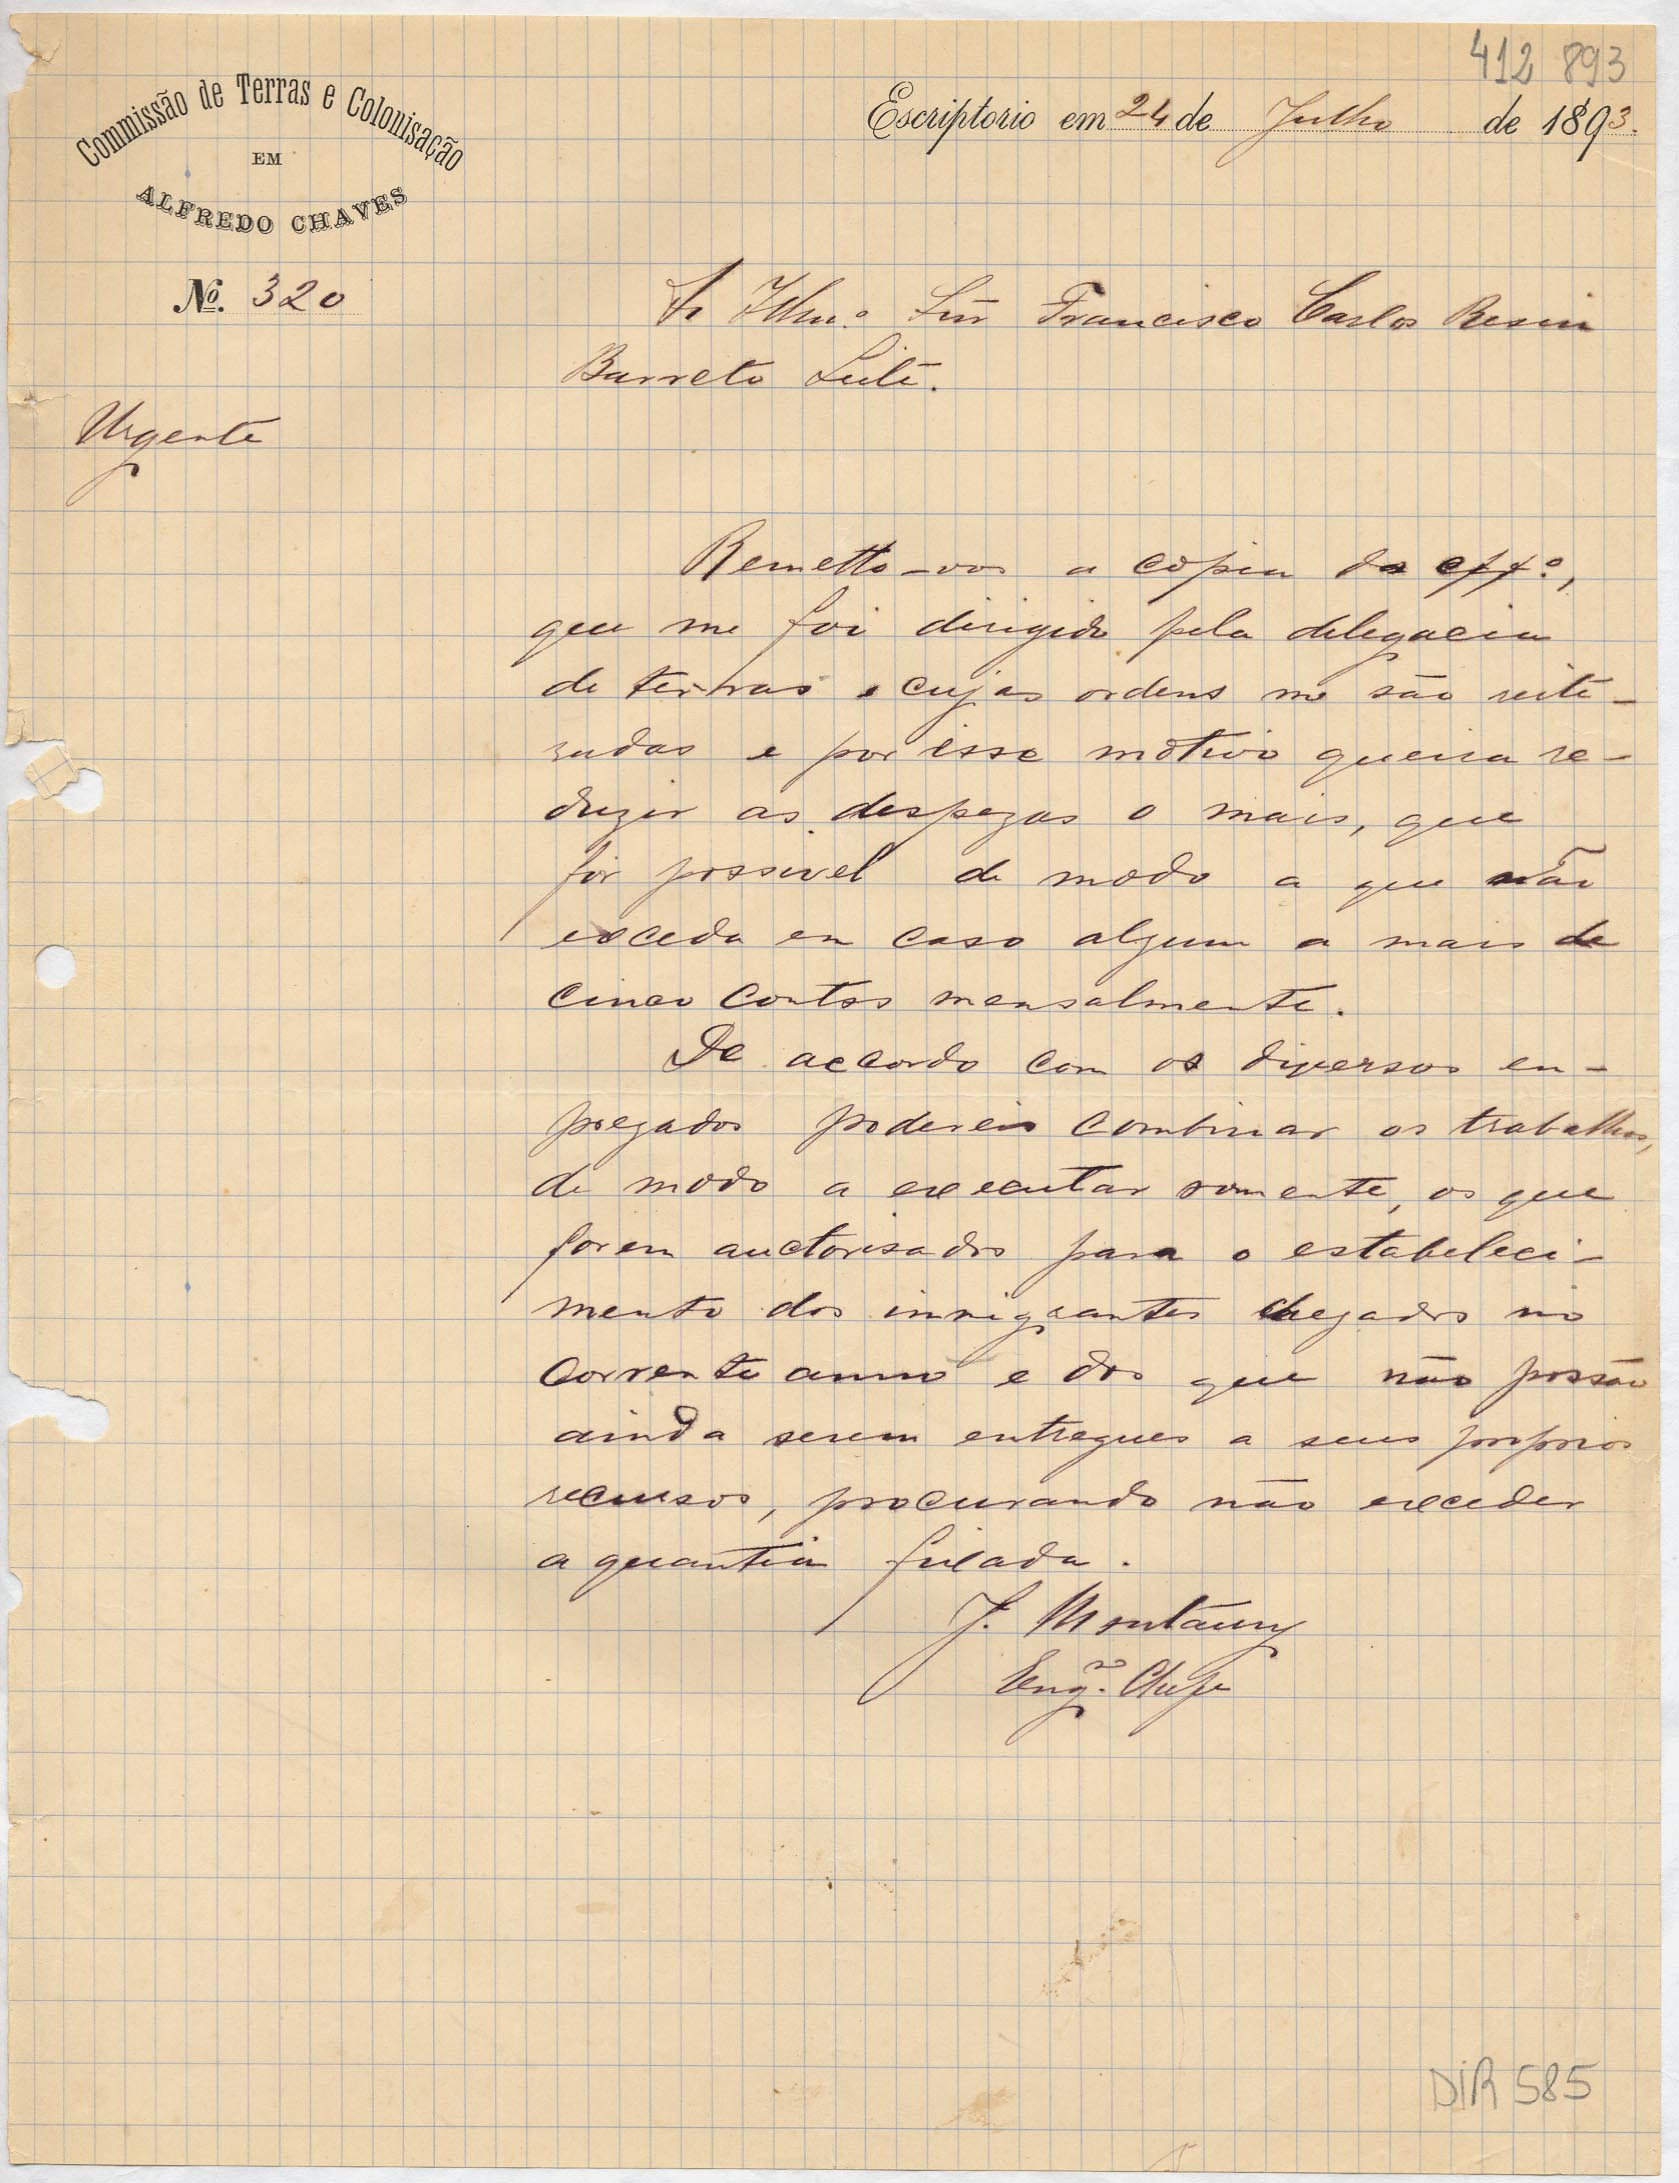 412 893
Commissão de Terras e Colonisação
EM
ALFREDO CHAVES
Escriptorio em 24 de Julho de 1893.
Nº. 320
Illmº. Snr Francisco Carlos Resin
Barreto Leite.
Urgente
Remetto-vos a copia do offº.,
que me foi dirigido pela delegacia
de terras e cujas ordens me são reite-
radas e por isso motivo queira re-
duzir as despezas o mais, que
fôr possivel de modo a que não
exceda em caso algum a mais de
cinco contos mensalmente.
De accordo com os diversos em-
pregados podereis combinar os trabalhos,
de modo a executar somente, os que
forem auctorisados para o estabeleci-
mento dos immigrantes chegados no
corrente anno e dos que não possão
ainda serem entregues a seus proprios
recursos, procurando não exceder
a quantia fixada.
J. Montaury
Engro. Chefe
DIR 585